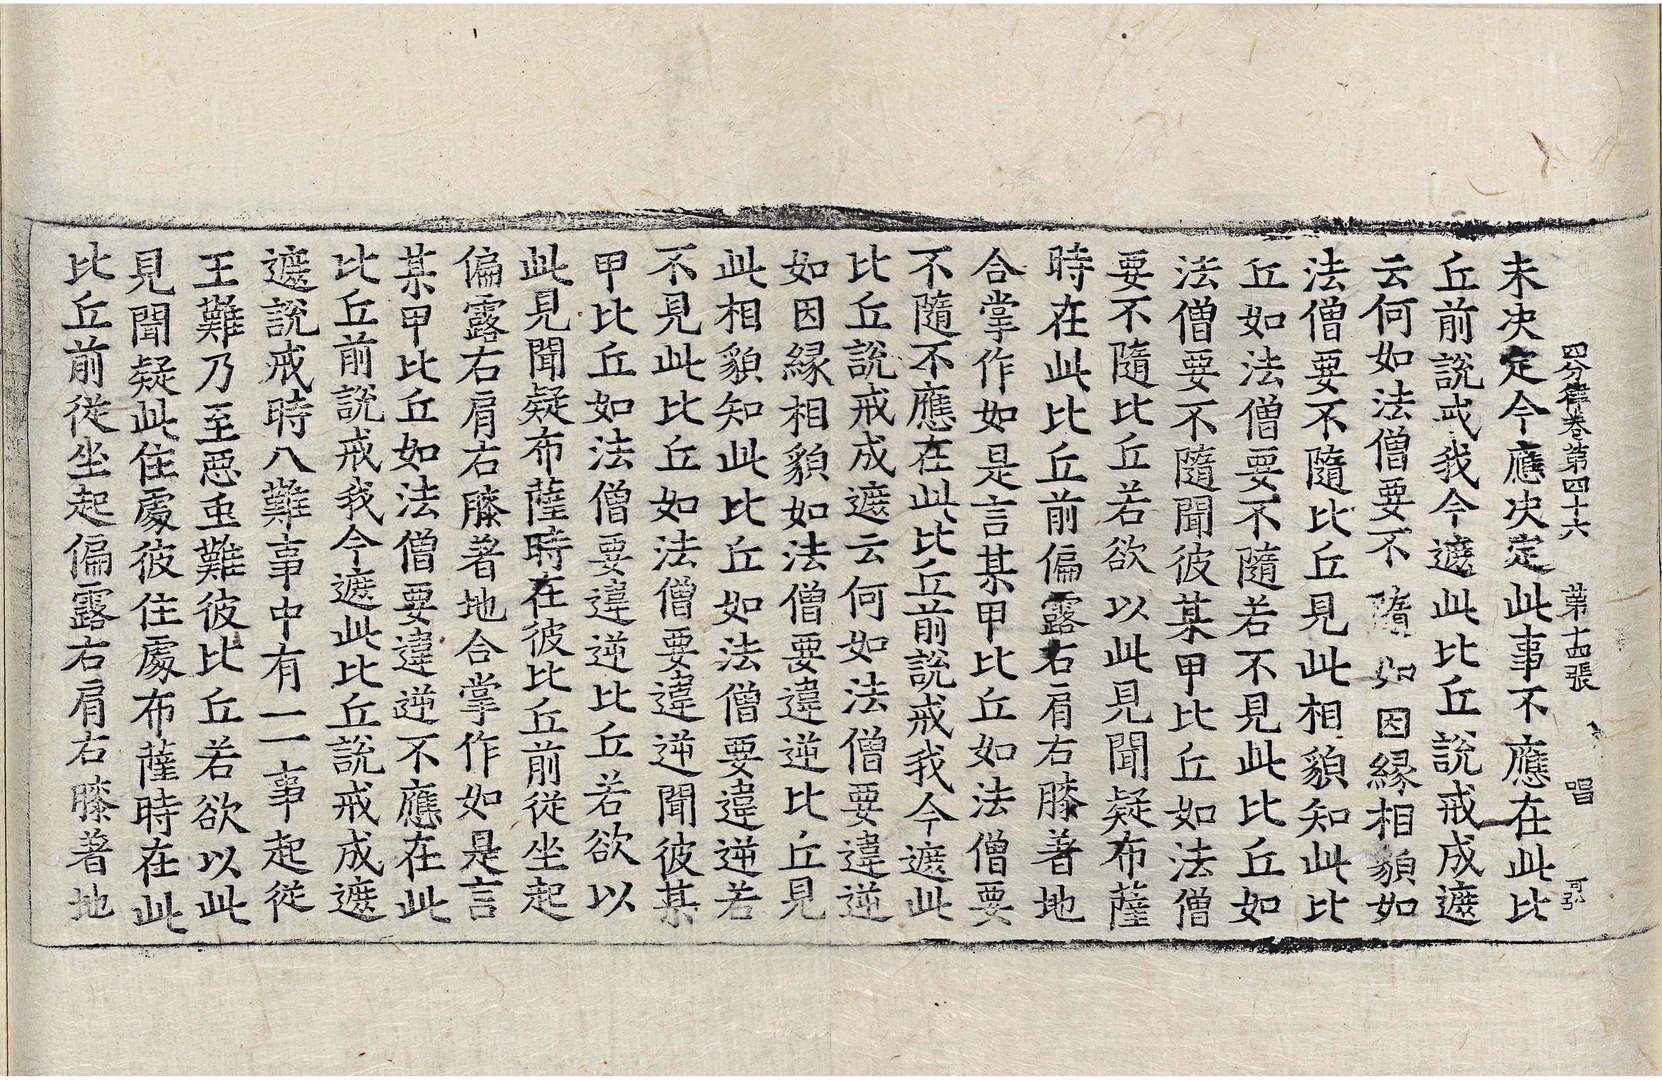 四分律卷第四十六 第十四張 唱
未决定今應决定此事不應在此比
丘前說戒我今遮此比丘說戒成遮
云何如法僧要不隨如因緣相貌如
法僧要不隨比丘見此相貌知此比
丘如法僧要不隨若不見此比丘如
法僧要不隨聞彼某甲比丘如法僧
要不隨比丘若欲以此見聞疑布薩
時在此比丘前偏露右肩右膝著地
合掌作如是言某甲比丘如法僧要
不隨不應在此比丘前說戒我今遮此
比丘說戒成遮云何如法僧要違逆
如因緣相貌如法僧要違逆比丘見
此相貌知此比丘如法僧要違逆若
不見此比丘如法僧要違逆聞彼某
甲比丘如法僧要違逆比丘若欲以
此見聞疑布薩時在彼比丘前從坐起
偏露右肩右膝著地合掌作如是言
某甲比丘如法僧要違逆不應在此
比丘前說戒我今遮此比丘說戒成遮
遮說戒時八難事中有一一事起從
王難乃至惡虫難彼比丘若欲以此
見聞疑此住處彼住處布薩時在此
比丘前從坐起偏露右肩右膝著地